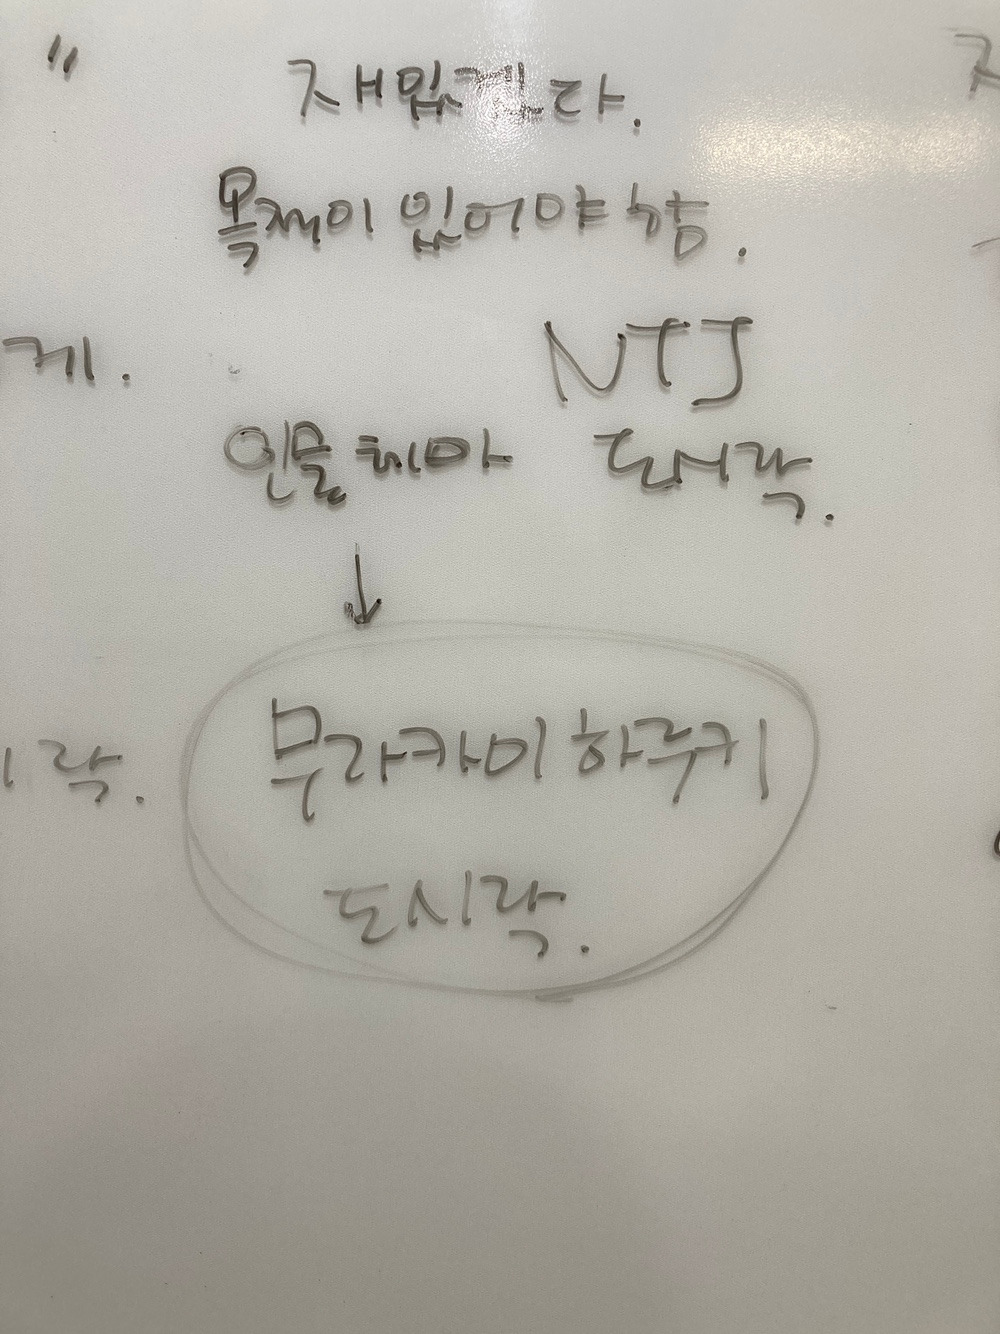 "
재밌겠다.
목적이 있어야 함.
게.
NTJ
인물 테마 도시락.
↓
무라카미 하루키
도시락.
락.